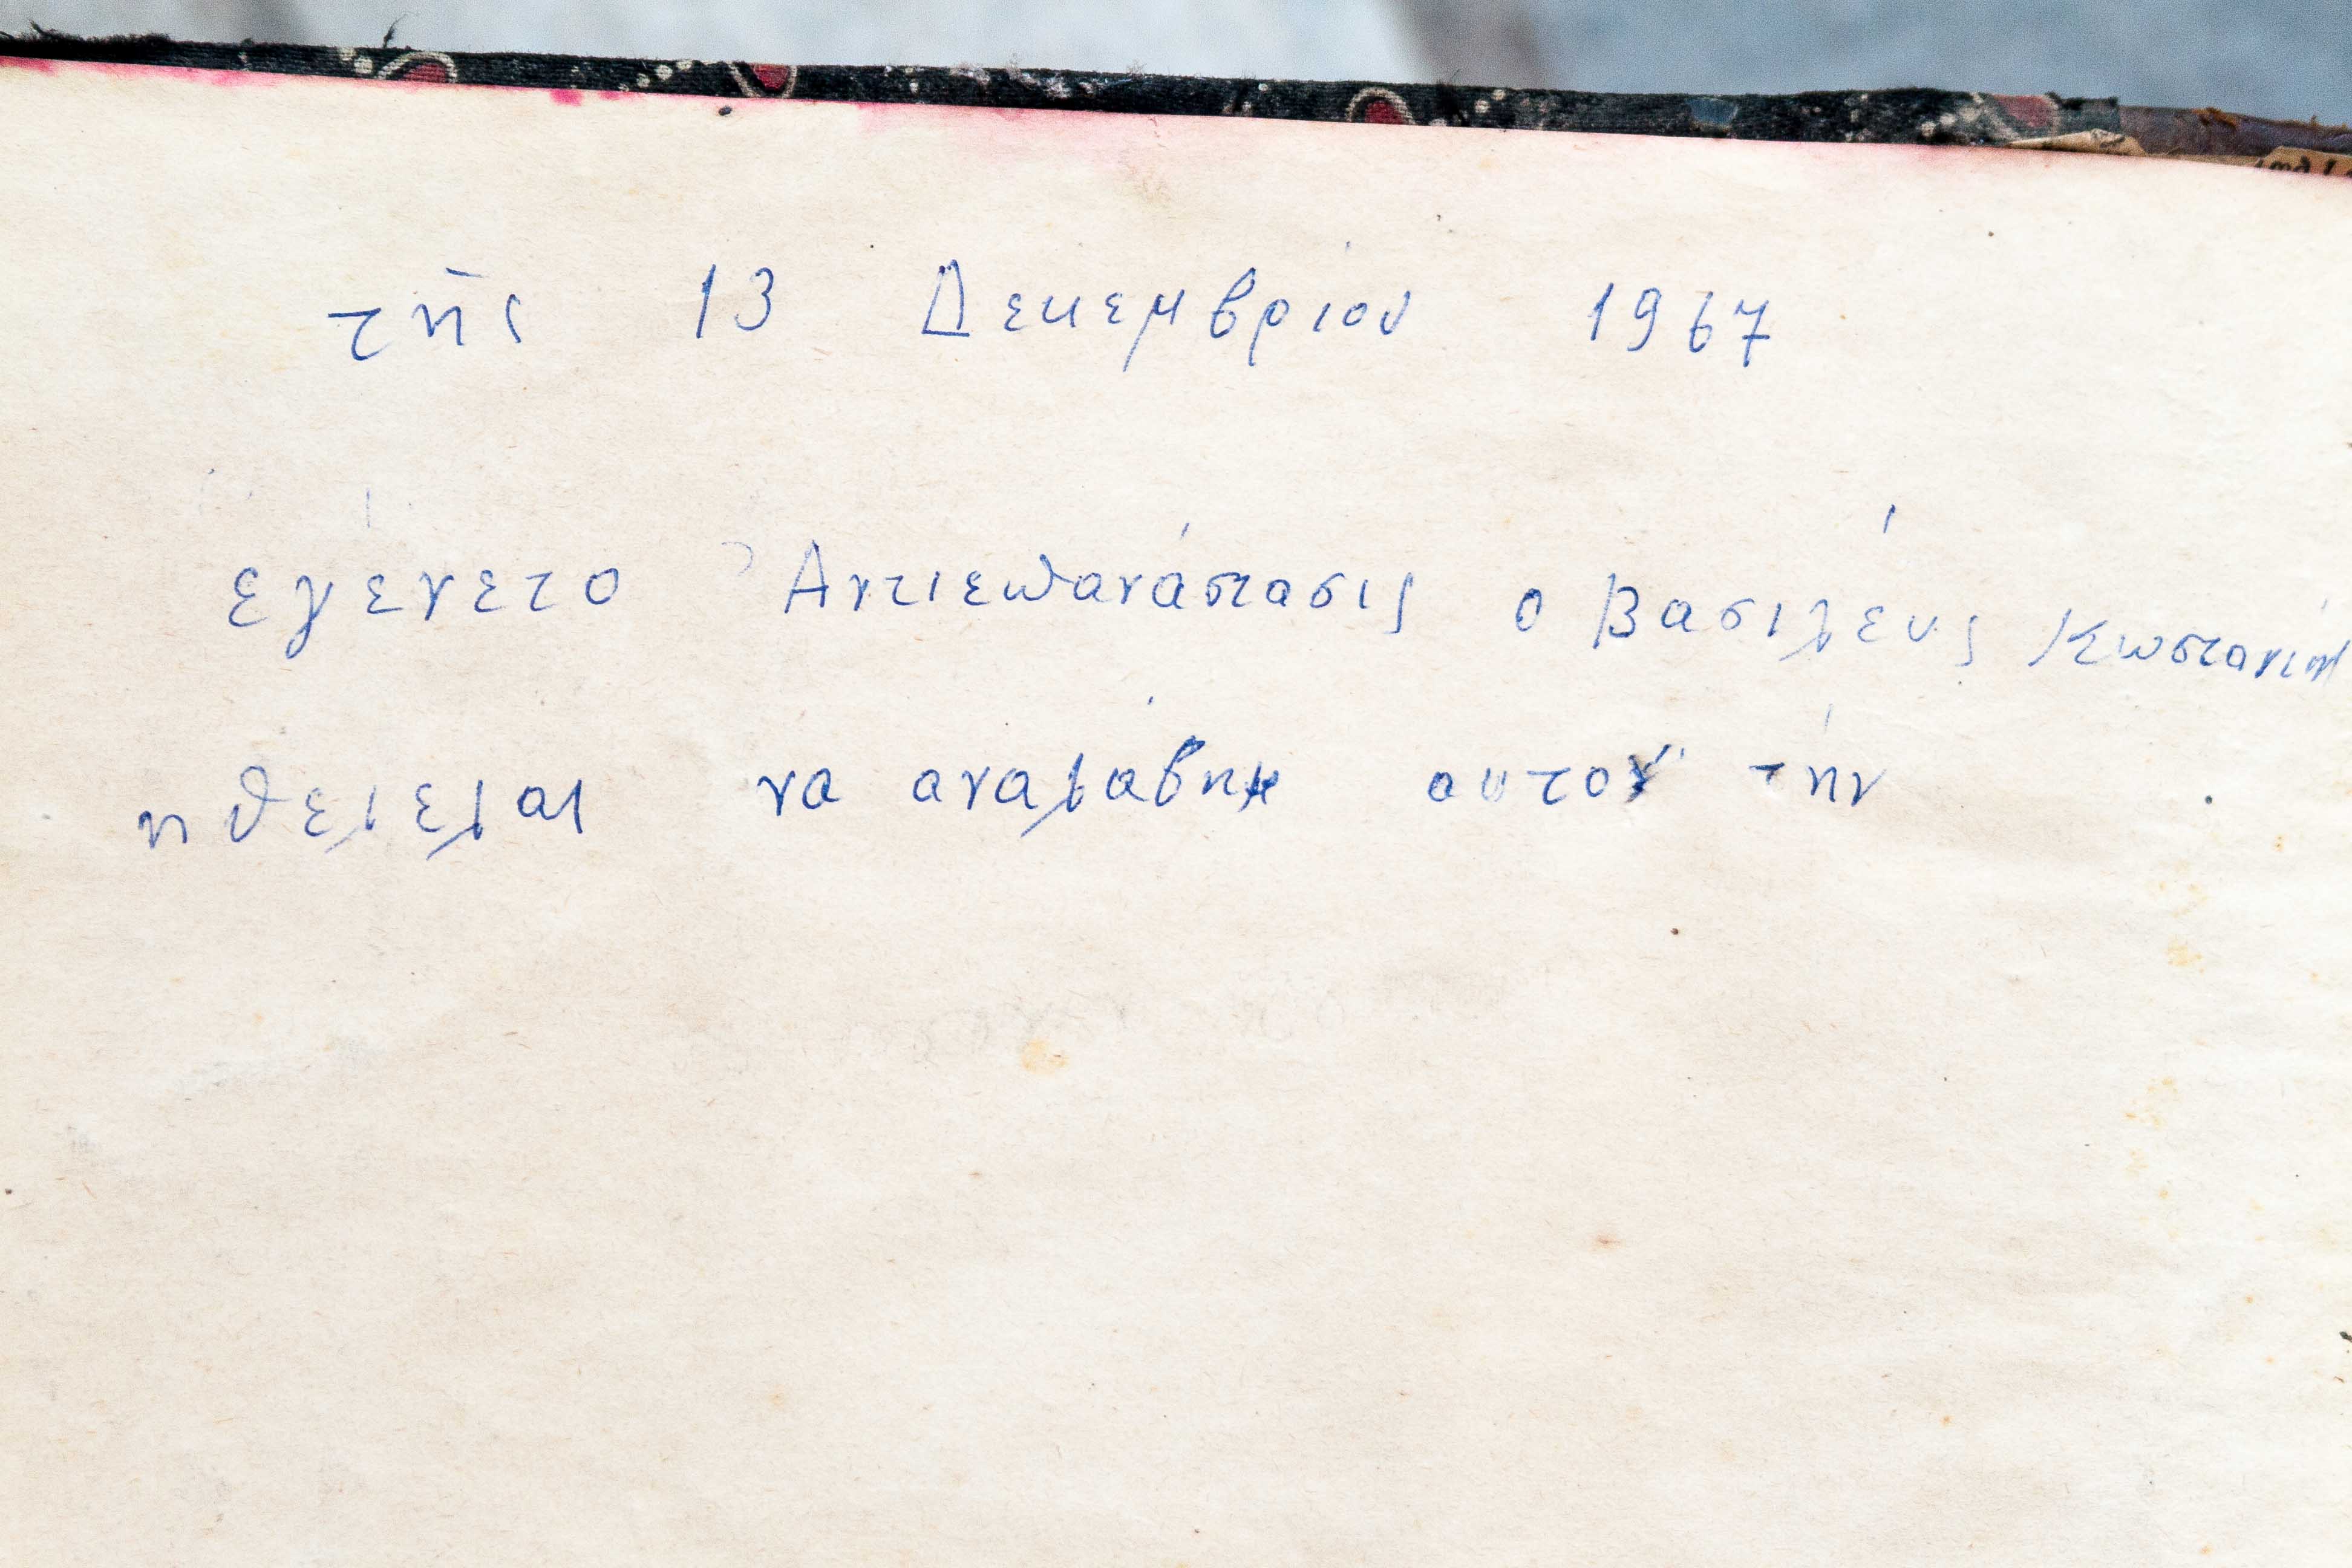 τῆς 13 Δεκεμβρίου 1967
εγένετο Ἀντιεπανάστασις ο Βασιλέυς
ηθελελαι να αναλαβη αυτον τήν